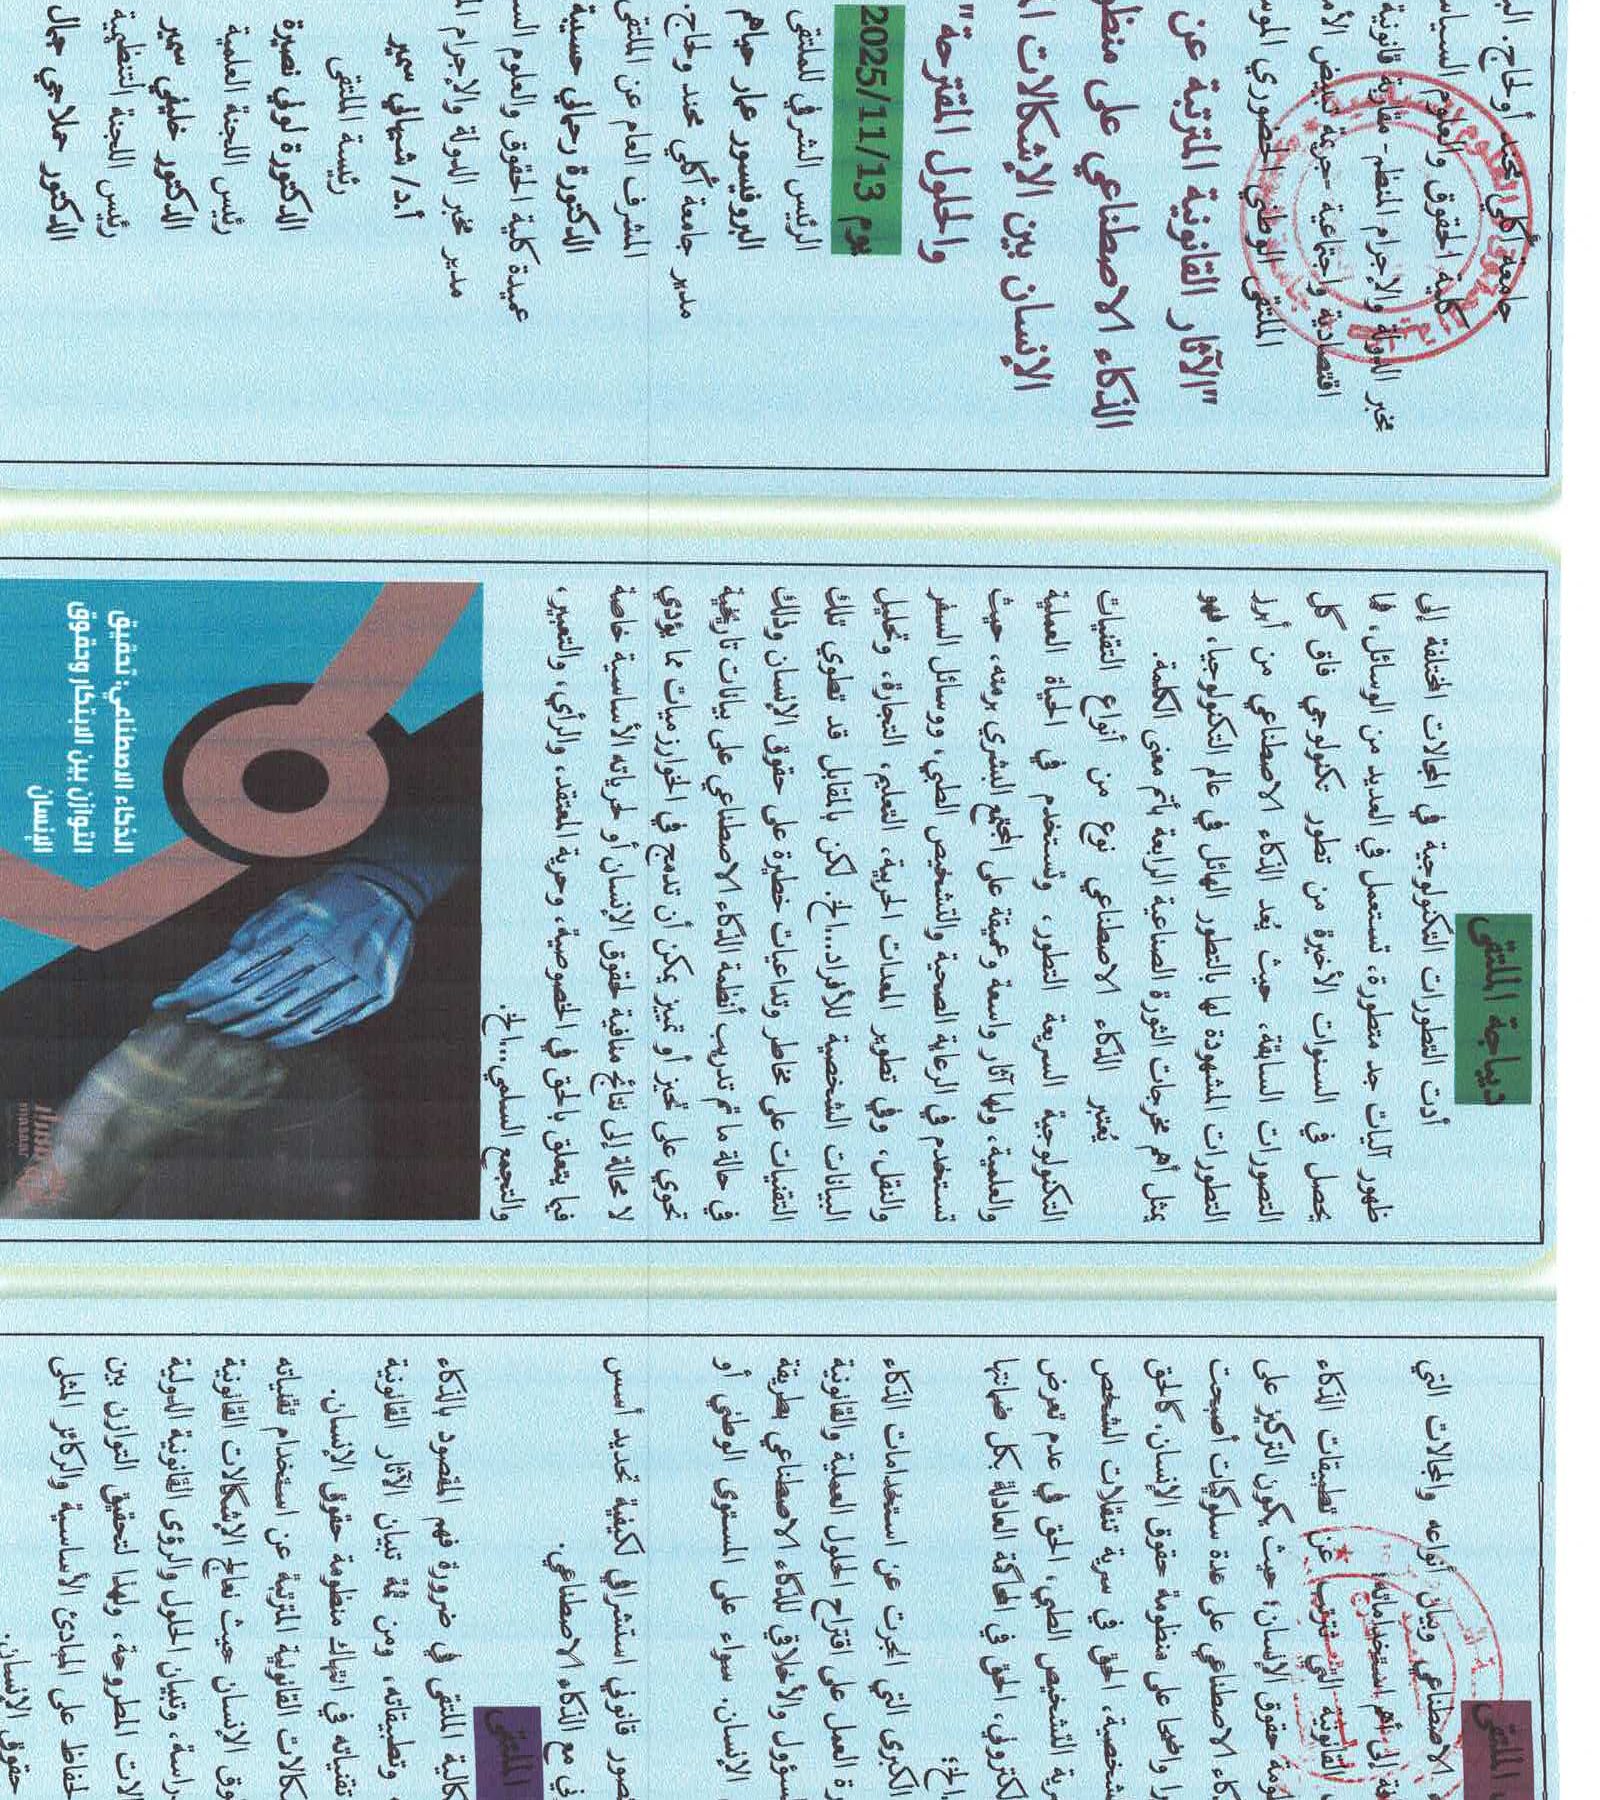 جامعة أكلي محند أولحاج. الب
كلية الحقوق والعلوم السياس
مخبر الدولة والإجرام المنظم- مقاربة قانونية
اقتصادية واجتماعية -جريمة تبييض الأم
الملتقى الوطني الحضوري الموس
"الآثار القانونية المترتبة عن
الذكاء الاصطناعي على منظو
الإنسان بين الإشكالات ا
والحلول المقترحة"
يوم 2025/11/13
الرئيس الشرفي للملتقى
البروفيسور عمار حياهم
مدير جامعة أكلي محند ولحاج.
المشرف العام عن الملتقى
الدكتورة رحمالي حسيبة
عميدة كلية الحقوق والعلوم الس
مدير مخبر الدولة والإجرام الم
أ.د/ شيهاني سمير
رئيسة الملتقى
الدكتورة لوني نصيرة
رئيس اللجنة العلمية
الدكتور خليفي سمير
رئيس اللجنة التنظيمية
الدكتور ملاحي جمال
ديباجة الملتقى
أدت التطورات التكنولوجية في المجالات المختلفة إلى
ظهور آليات جد متطورة، تستعمل في العديد من الوسائل، فما
يحصل في السنوات الأخيرة من تطور تكنولوجي فاق كل
التصورات السابقة، حيث يُعد الذكاء الاصطناعي من أبرز
التطورات المشهودة لها بالتطور الهائل في عالم التكنولوجيا، فهو
يمثل أهم مخرجات الثورة الصناعية الرابعة بأتم معنى الكلمة.
يُعتبر الذكاء الاصطناعي نوع من أنواع التقنيات
التكنولوجية السريعة التطور، وتستخدم في الحياة العملية
والعلمية، ولها آثار واسعة وعميقة على المجتمع البشري برمته، حيث
تستخدم في الرعاية الصحية والتشخيص الطبي، ووسائل السفر
والنقل، وفي تطوير المعدات الحربية، التعليم، التجارة، وتحليل
البيانات الشخصية للأفراد...الخ. لكن بالمقابل قد تطوي تلك
التقنيات على مخاطر وتداعيات خطيرة على حقوق الإنسان وذلك
في حالة ما تم تدريب أنظمة الذكاء الاصطناعي على بيانات تاريخية
تحوي على تحيز أو تمييز يمكن أن تدمج في الخوارزميات مما يؤدي
لا محالة إلى نتائج منافية لحقوق الإنسان أو لحرياته الأساسية خاصة
فيما يتعلق بالحق في الخصوصية، وحرية المعتقد، والرأي، والتعبير،
والتجمع السلمي...الخ.
الذكاء الاصطناعي: تحقيق
التوازن بين الابتكار وحقوق
الإنسان
الملتقى
الاصطناعي وبيان أنواعه والمجالات التي
فة إلى أهم استخداماته؛
القانونية التي تترتب عن تطبيقات الذكاء
ومة حقوق الإنسان؛ حيث يكون التركيز على
كاء الاصطناعي على عدة سلوكيات أصبحت
را واضحا على منظومة حقوق الإنسان. كالحق
شخصية، الحق في سرية تنقلات الشخص
رية التشخيص الطبي، الحق في عدم تعرض
لكتروني، الحق في المحاكمة العادلة بكل ضماناتها
الخ؛
الكبرى التي انجرت عن استخدامات الذكاء
رة العمل على اقتراح الحلول العملية والقانونية
سؤول والأخلاقي للذكاء الاصطناعي بطريقة
الإنسان. سواء على المستوى الوطني أو
تصور قانوني استشرافي لكيفية تحديد أسس
ني مع الذكاء الاصطناعي.
الملتقى
كالية الملتقى في ضرورة فهم المقصود بالذكاء
وتطبيقاته، ومن ثمة تبيان الآثار القانونية
تقنياته في انتهاك منظومة حقوق الإنسان.
كالات القانونية المترتبة عن استخدام تقنياته
وق الإنسان حيث نعالج الإشكالات القانونية
راسة، وتبيان الحلول والرؤى القانونية الدولية
لات المطروحة، ولهذا لتحقيق التوازن بين
لحفاظ على المبادئ الأساسية والركائز المثلى
حقوق الإنسان.